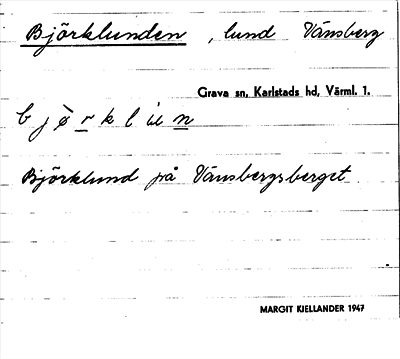 Björklunden , lund Vänsberg
Grava sn, Karlstads hd, Värml. 1.
Björklund på Vänsbergsberget
MARGIT KIELLANDER 1947